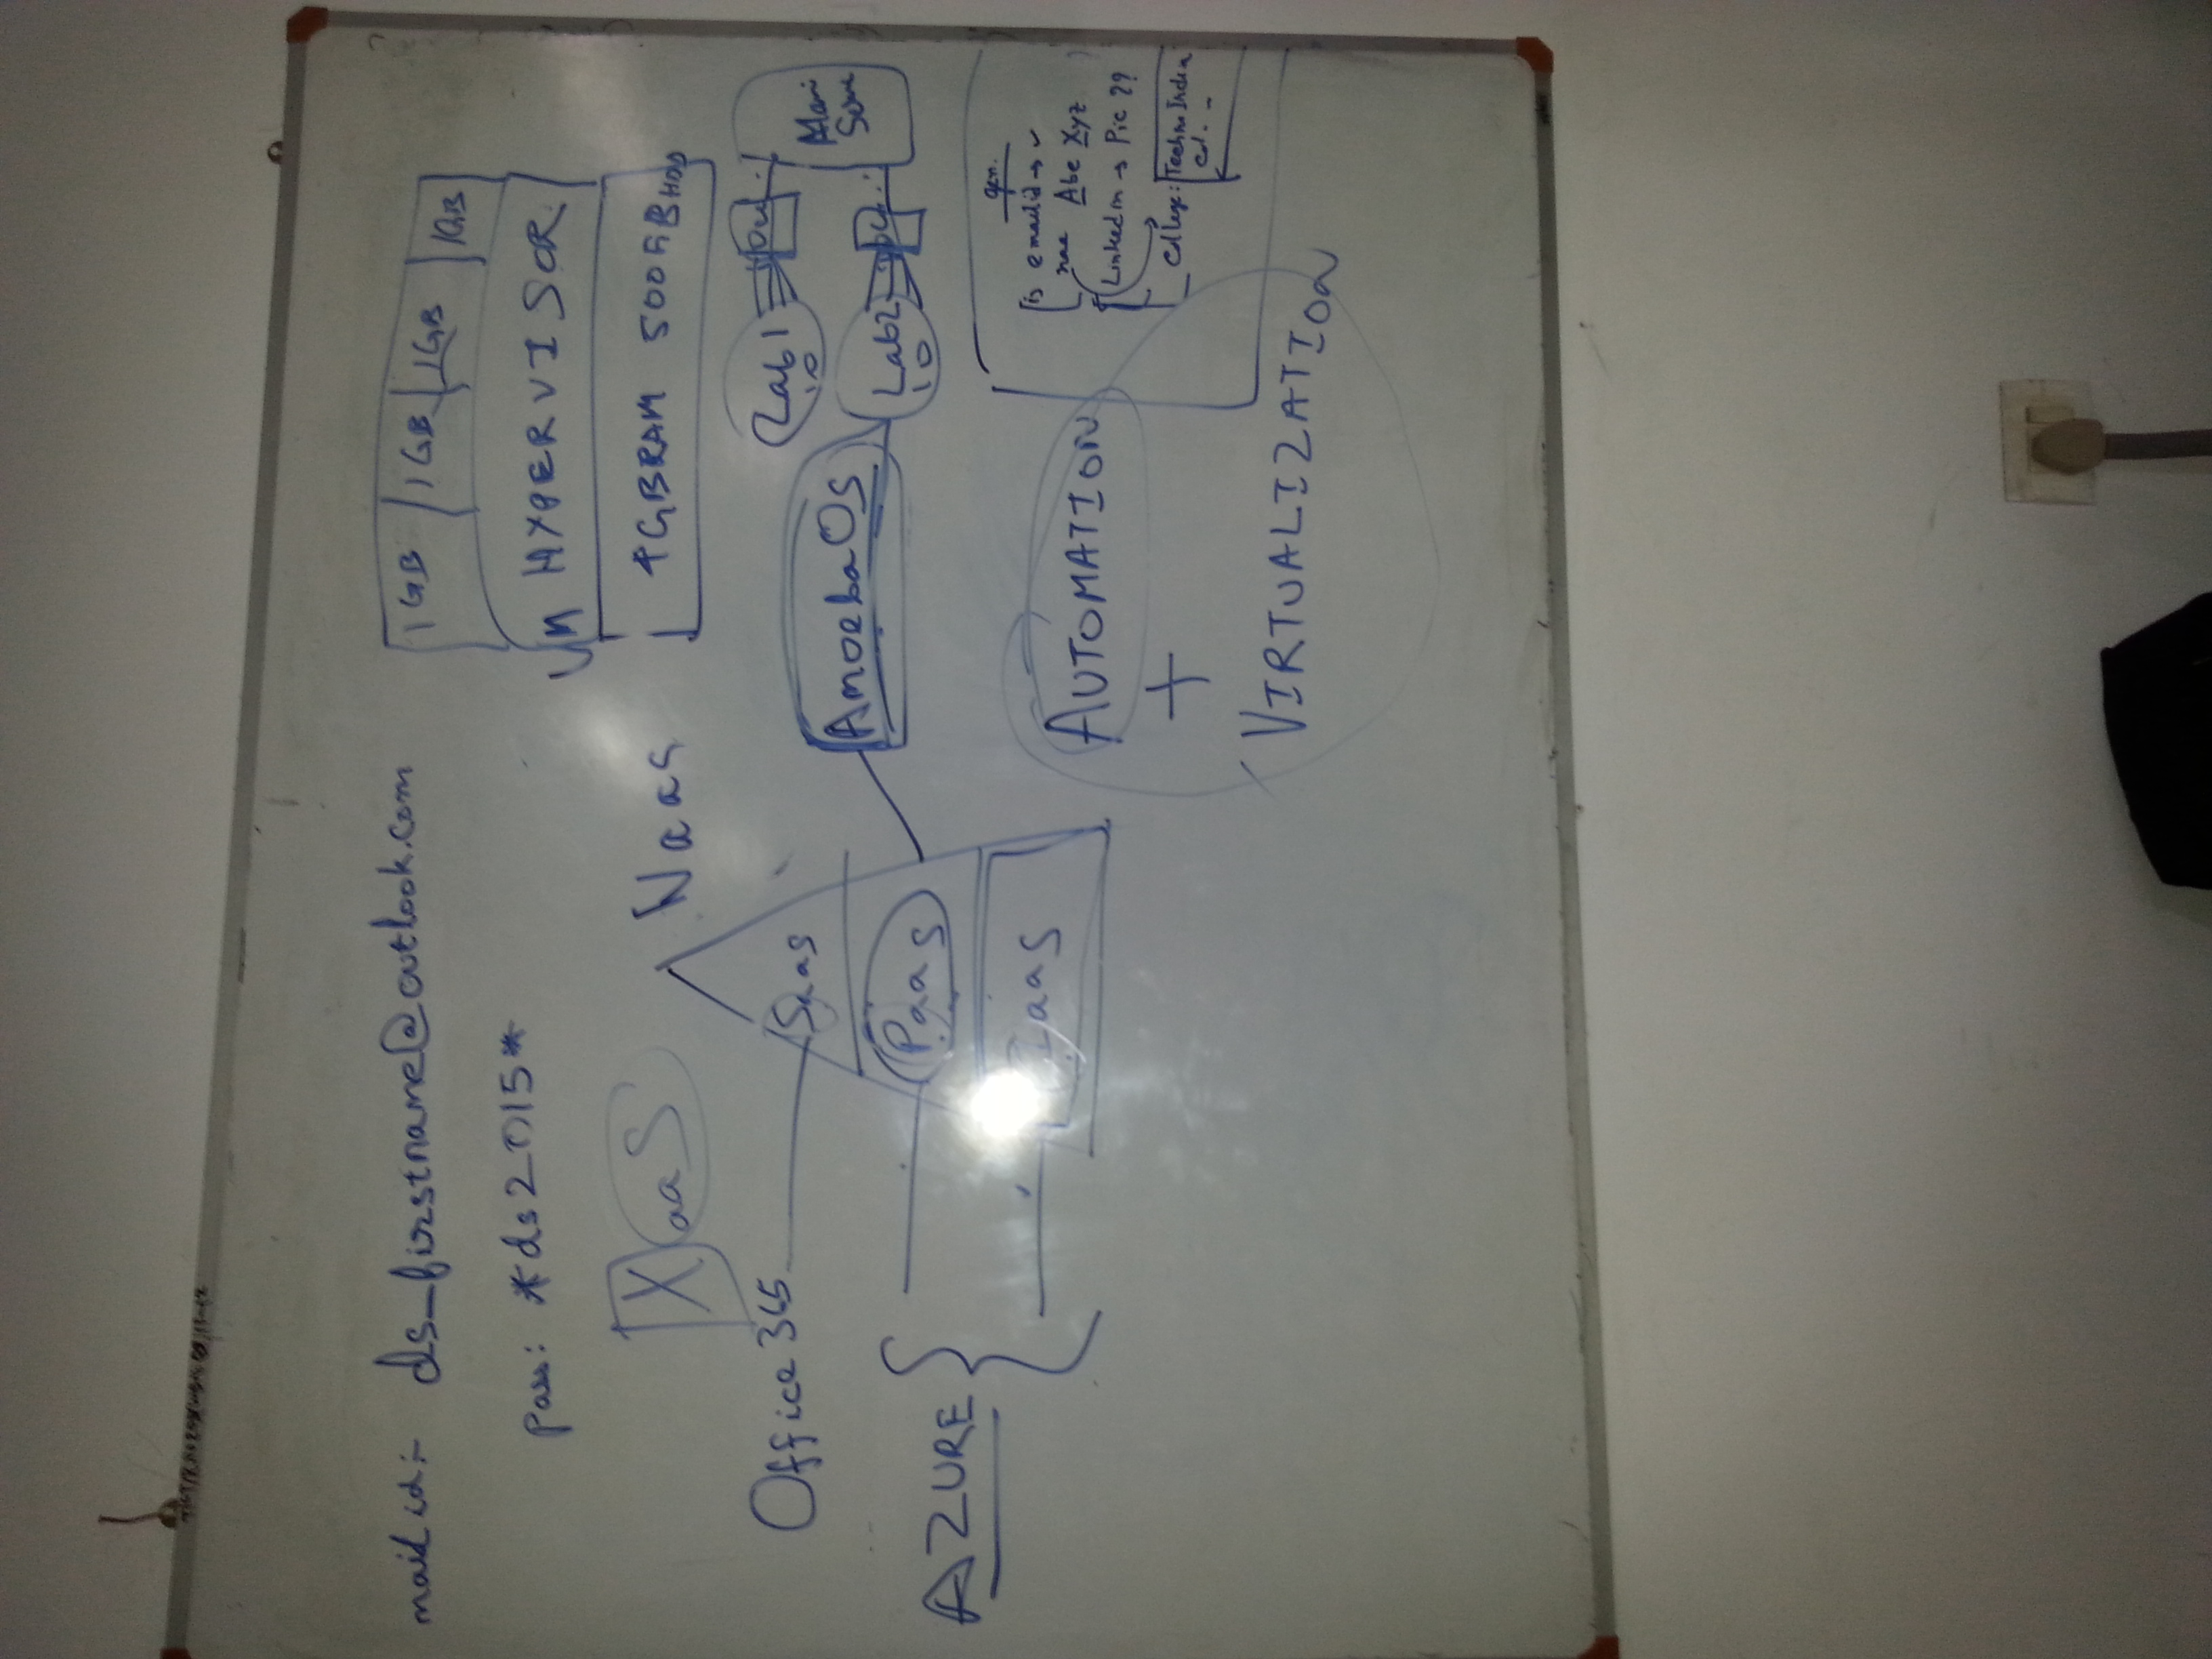 mail id:- ds_firstname@outlook.com
Pass: *ds2015*
XaaS
Naas
Office 365
Saas
Paas
IaaS
AZURE
1GB 1GB 1GB 1GB
HYPERVISOR
4GBRAM 500GB HDD
AmoebaOS
Lab1
10
Lab2
10
Main
AUTOMATION
+
VIRTUALIZATION
gen.
is emailid →
Abc Xyz
Linkedin → Pic ??
College: Techno India